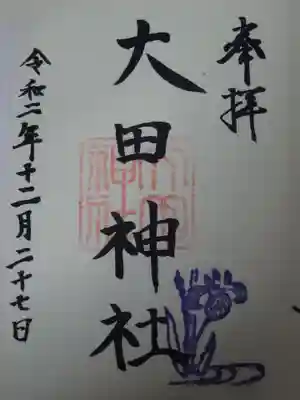 奉拝
大田神社
令和二年十二月二十七日